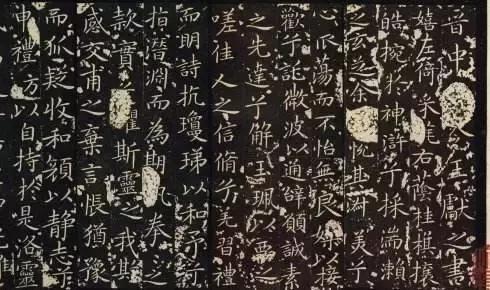 晉中 令王獻之書
嬉左倚采旄右蔭桂旗攘
皓捥於神滸兮採湍瀨
之玄芝余悅其淑美兮
心振蕩而不怡無良媒以接
歡兮託微波以通辭願誠素
之先達兮解玉珮以要之
嗟佳人之信脩兮羌習禮
而明詩抗瓊珶以和予兮
指潛淵而為期執拳之
款實兮懼斯靈之我欺
感交甫之棄言悵猶豫
而狐疑收和顏以静志兮
申禮防以自持於是洛靈